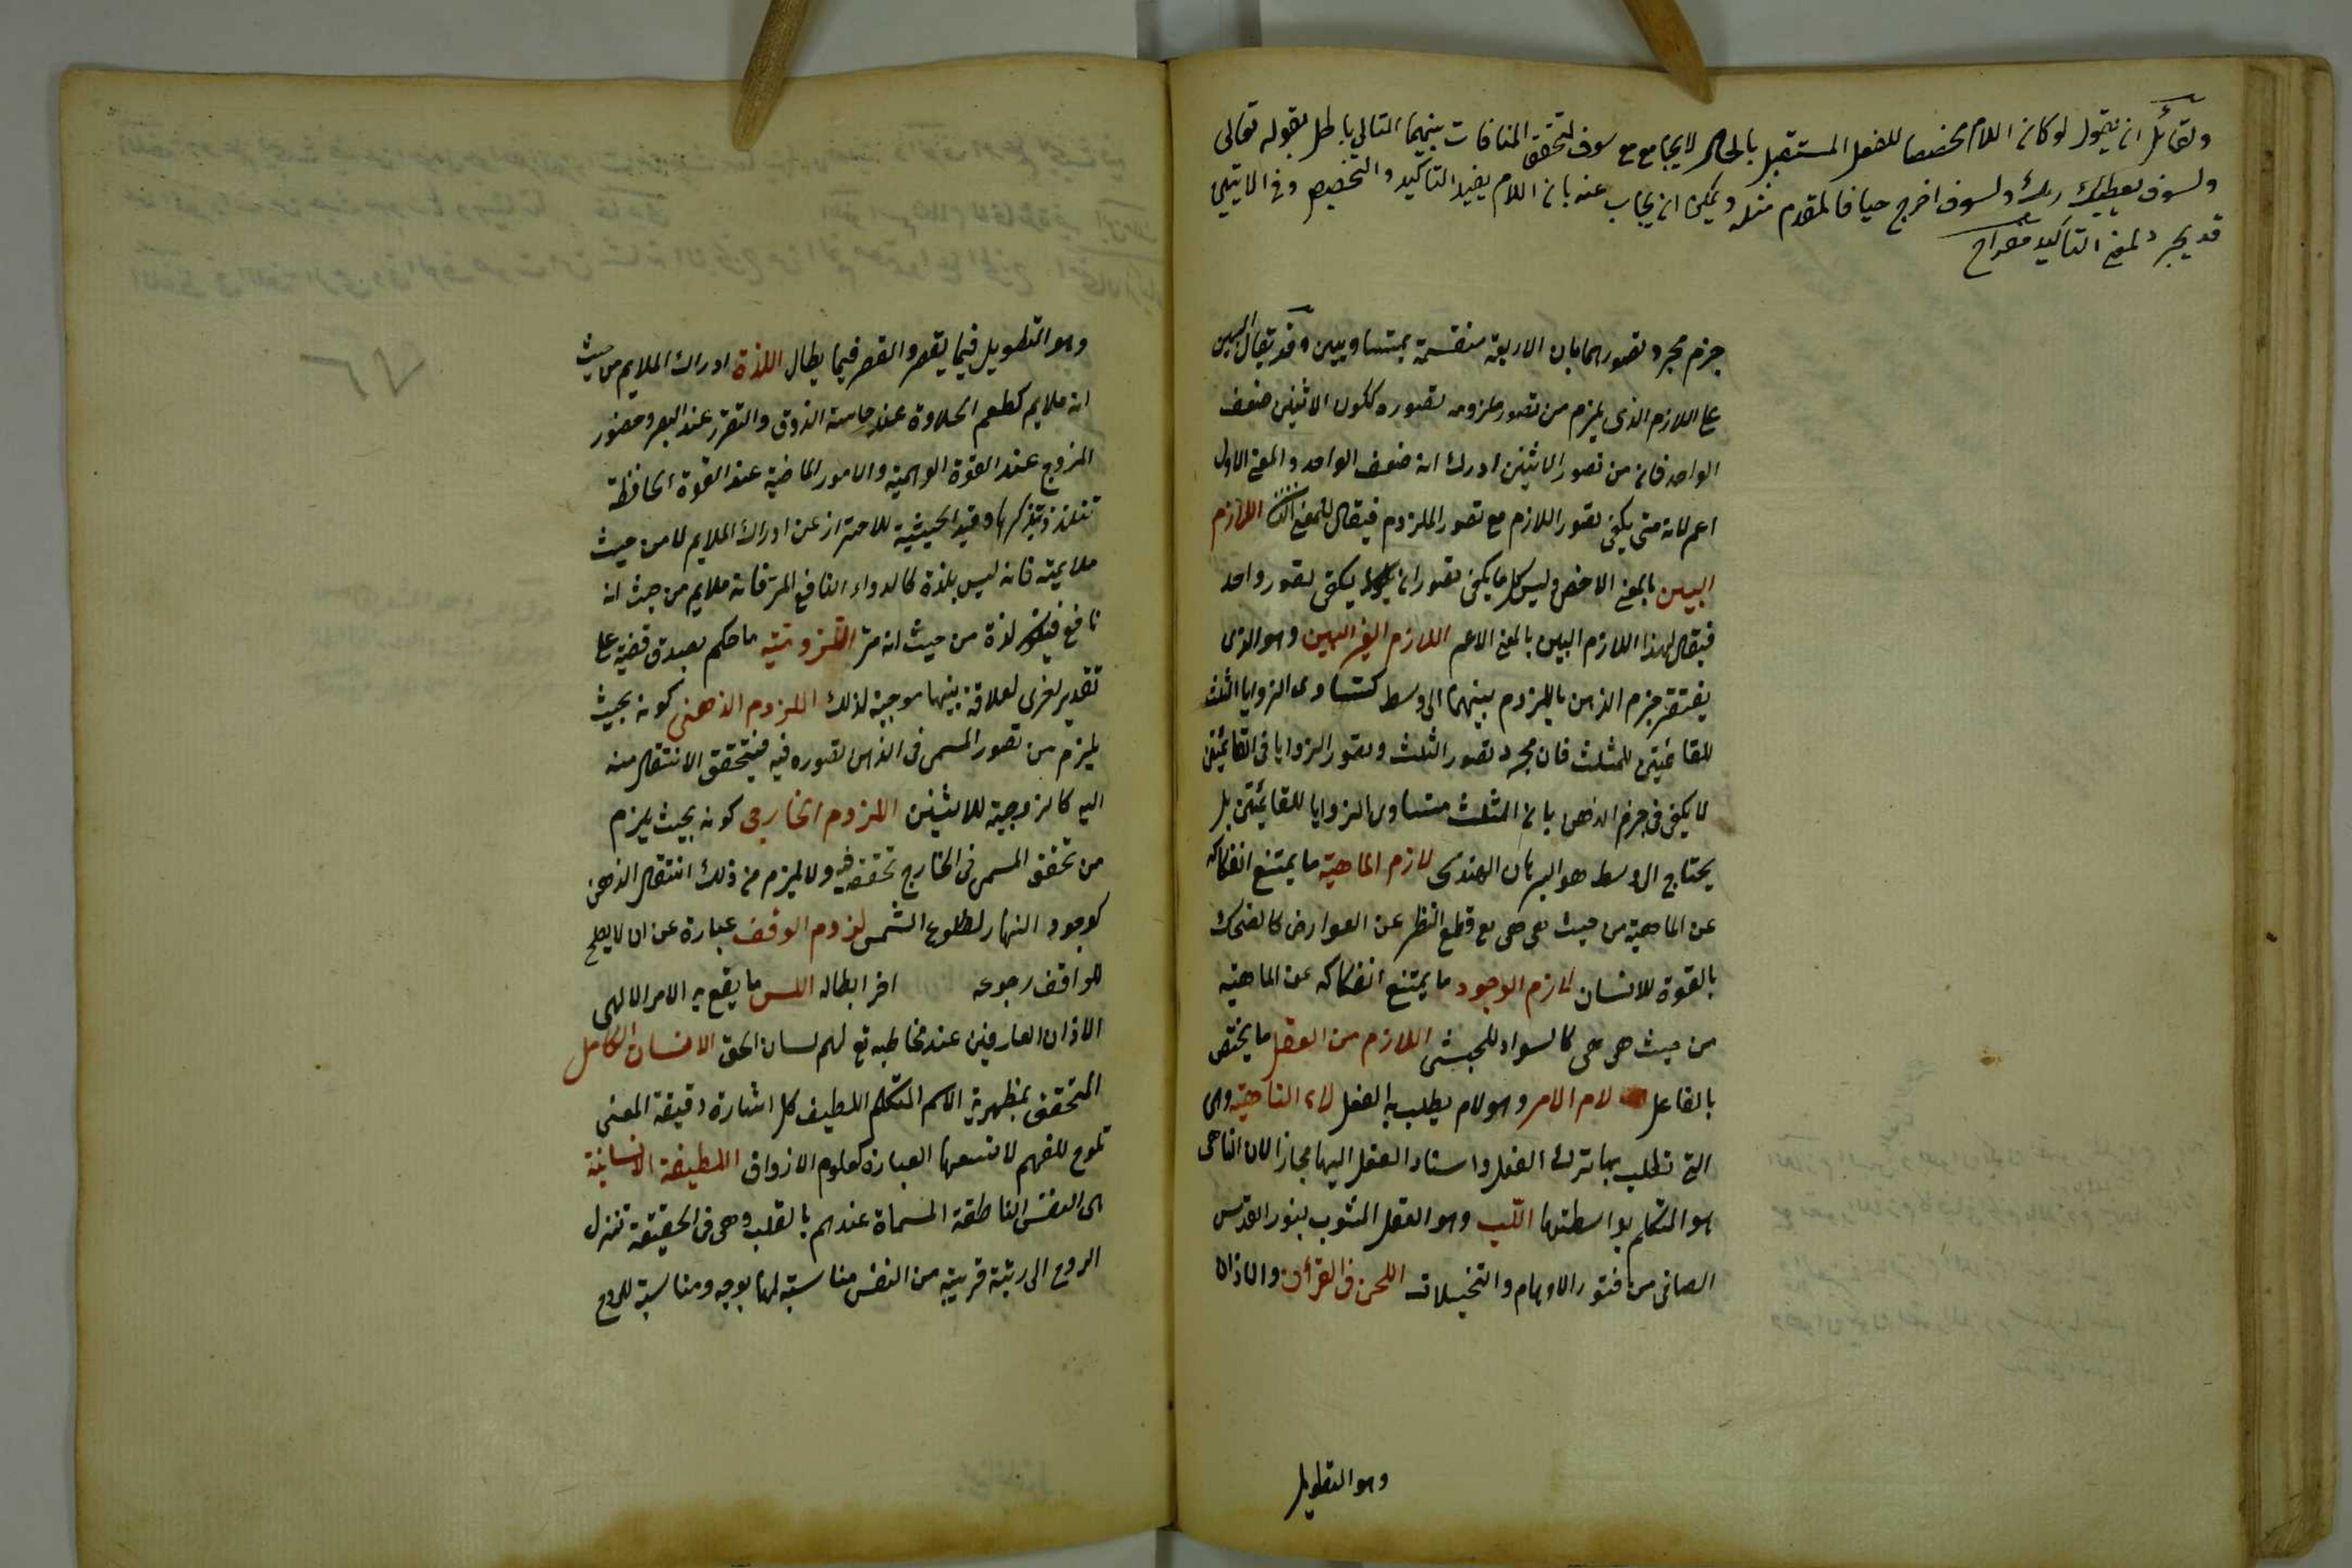 ولقائل ان يقول لو كان اللام مخصصا للفعل المستقبل بالحال لا يجامع مع سوف لتحقق المنافات بينهما التالى باطل بقوله تعالى
ولسوف يعطيك ربك ولسوف اخرج حيا فالمقدم مثله ويمكن ان يجاب عنه بان اللام يفيد التاكيد والتخصيص وفى الايتين
قد يجرد لمعنى التاكيد
جزم مجرد تصورهما بان الاربعة منقسمة بمتساويين وقد يقال البين
على اللازم الذى يلزم من تصور ملزومه تصوره ككون الاثنين ضعف
الواحد فان من تصور الاثنين ادرك انه ضعف الواحد والمعنى الاول
اعم لانه متى يكفى تصور اللازم مع تصور الملزوم فيقال للمعنى الثانى اللازم
البين بالمعنى الاخص وليس كلما يكفى تصوران يكفى تصور واحد
فيقال لهذا اللازم البين بالمعنى الاعم اللازم الغير البين وهو الذى
يفتقر جزم الذهن باللزوم بينهما الى وسط كتساوى الزوايا الثلث
للقائمتين للمثلث فان مجرد تصور المثلث وتصور الزوايا فى القائمتين
لا يكفى فى جزم الذهن بان المثلث متساوى الزوايا للقائمتين بل
يحتاج الى وسط هو البرهان الهندسى لازم الماهية ما يمتنع انفكاكه
عن الماهية من حيث هى هى مع قطع النظر عن العوارض كالضحك
بالقوة للانسان لازم الوجود ما يمتنع انفكاكه عن الماهية
من حيث هى هى كالسواد للحبشى اللازم من الفعل ما يختص
بالفاعل لام الامر وهو لام يطلب به الفعل لاء الناهية وهى
التى تطلب بها ترك الفعل واسناد الفعل اليها مجاز لان الناهى
هو المتكلم بواسطتها اللب وهو العقل المنور بنور القدس
الصافى من قشور الاوهام والتخيلات اللحن فى القرآن والاذان
وهو التطويل
وهو التطويل فيما يقصر والقصر فيما يطال اللذة ادراك الملايم من حيث
انه ملايم كطعم الحلاوة عند حاسة الذوق والنور عند البصر وحضور
المرجو عند القوة الوهمية والامور الماضية عند القوة الحافظة
تتلذذ بتذكرها وقيد الحيثية للاحتراز عن ادراك الملايم لا من حيث
ملايمته فانه ليس بلذة كالدواء النافع المر فانه ملايم من حيث انه
نافع فيكون لذة من حيث انه مر اللزومية ما حكم بصدق قضية على
تقدير اخرى لعلاقة بينهما موجبة لذلك اللزوم الذهنى كونه بحيث
يلزم من تصور المسمى فى الذهن تصوره فيه فيتحقق الانتقال منه
اليه كالزوجية للاثنين اللزوم الخارجى كونه بحيث يلزم
من تحقق المسمى فى الخارج تحققه فيه ولا يلزم من ذلك انتقال الذهن
كوجود النهار لطلوع الشمس لزوم الوقف عبارة عن ان لا يصح
للواقف رجوعه اخر ابطاله اللسن ما يقع به الامر الالهى
الاذان العارفين عند مخاطبه تع لهم لسان الحق الانسان الكامل
المتحقق بمظهرية الاسم المتكلم اللطيف كل اشارة دقيقة المعنى
تلوح للفهم لا تسعها العبارة كعلوم الاذواق اللطيفة الانسانية
هى النفس الناطقة المسماة عندهم بالقلب وهى فى الحقيقة تنزل
الروح الى رتبة قريبة من النفس مناسبة لها بوجه ومناسبة للروح